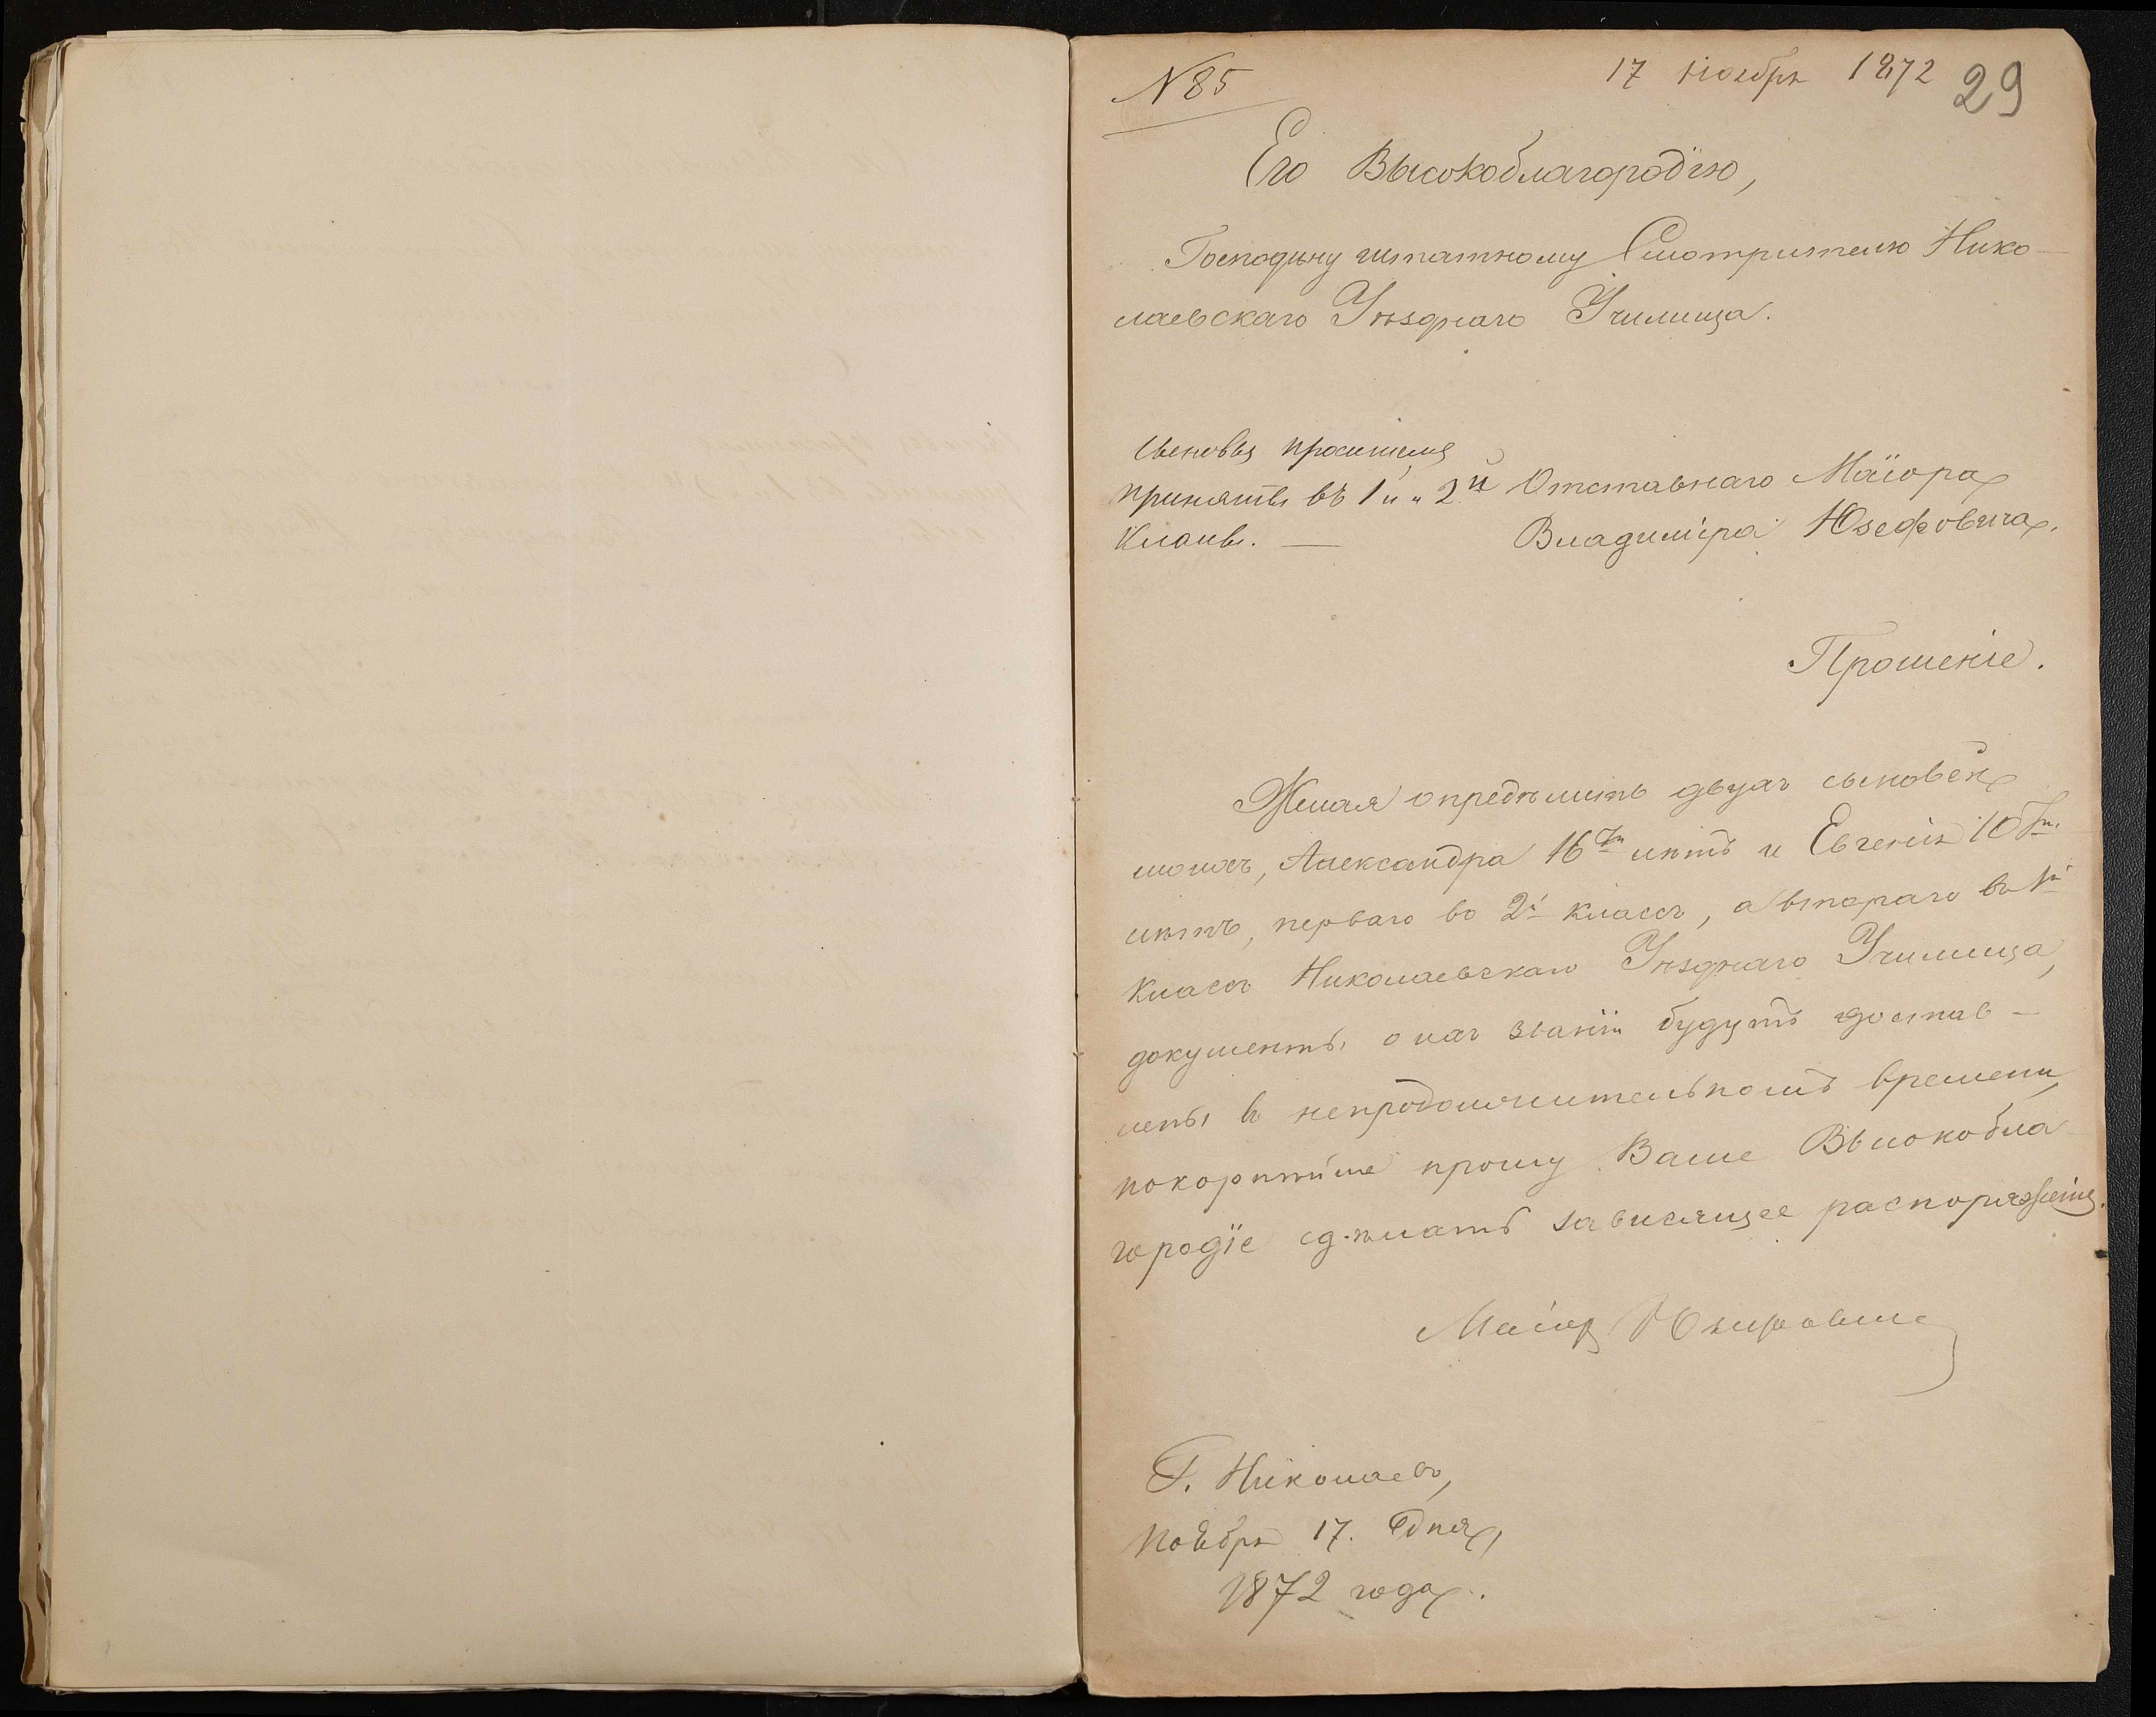 N 85
17 ноября 1872
29
Его Высокоблагородїю,
Господину штатному Смотрителю Нико-
лаевскаго Уѣзднаго Училища.
Сыновья просителя
приняты въ 1й и 2й
классы. —
Отставнаго Маіора
Владиміра Юзефовича.
Прошеніе.
Желая опредѣлить двухъ сыновей
моихъ, Александра 16ти лѣтъ и Евгенія 10ти
лѣтъ, перваго во 2й классъ, а втораго въ 1й
классъ Николаевскаго Уѣзднаго Училища,
документы о ихъ званїи будутъ достав-
лены въ непродолжительномъ времени,
покорнѣйше прошу Ваше Высокобла
городїе сдѣлать зависящее распоряженіе.
Маіоръ Юзефовичъ
Г. Николаевъ,
Ноября 17. дня,
1872 года.